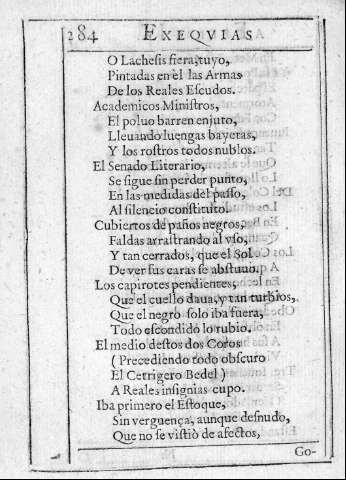 284 EXEQVIAS
O Lachesis fiera, tuyo,
Pintadas en èl las Armas
De los Reales Escudos.
Academicos Ministros,
El poluo barren enjuto,
Lleuando luengas bayetas,
Y los rostros todos nublos.
El Senado Literario,
Se sigue sin perder punto,
En las medidas del passo,
Al silencio constituto.
Cubiertos de paños negros,
Faldas arrastrando al vso,
Y tan cerrados, que el Sol
De ver sus caras se abstuuo.
Los capirotes pendientes,
Que el cuello daua, y tan turbios,
Que el negro solo iba fuera,
Todo escondido lo rubio.
El medio destos dos Coros
(Precediendo todo obscuro
El Cetrigero Bedel)
A Reales insignias cupo.
Iba primero el Estoque,
Sin verguença, aunque desnudo,
Que no se vistiò de afectos,
Go-